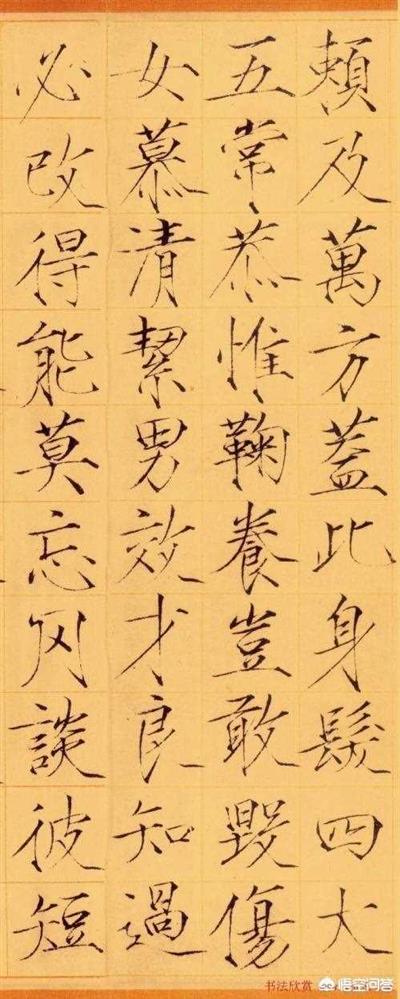 賴及萬方蓋此身髮四大
五常恭惟鞠養豈敢毀傷
女慕清絜男效才良知過
必改得能莫忘罔談彼短
書法欣赏
悟空问答